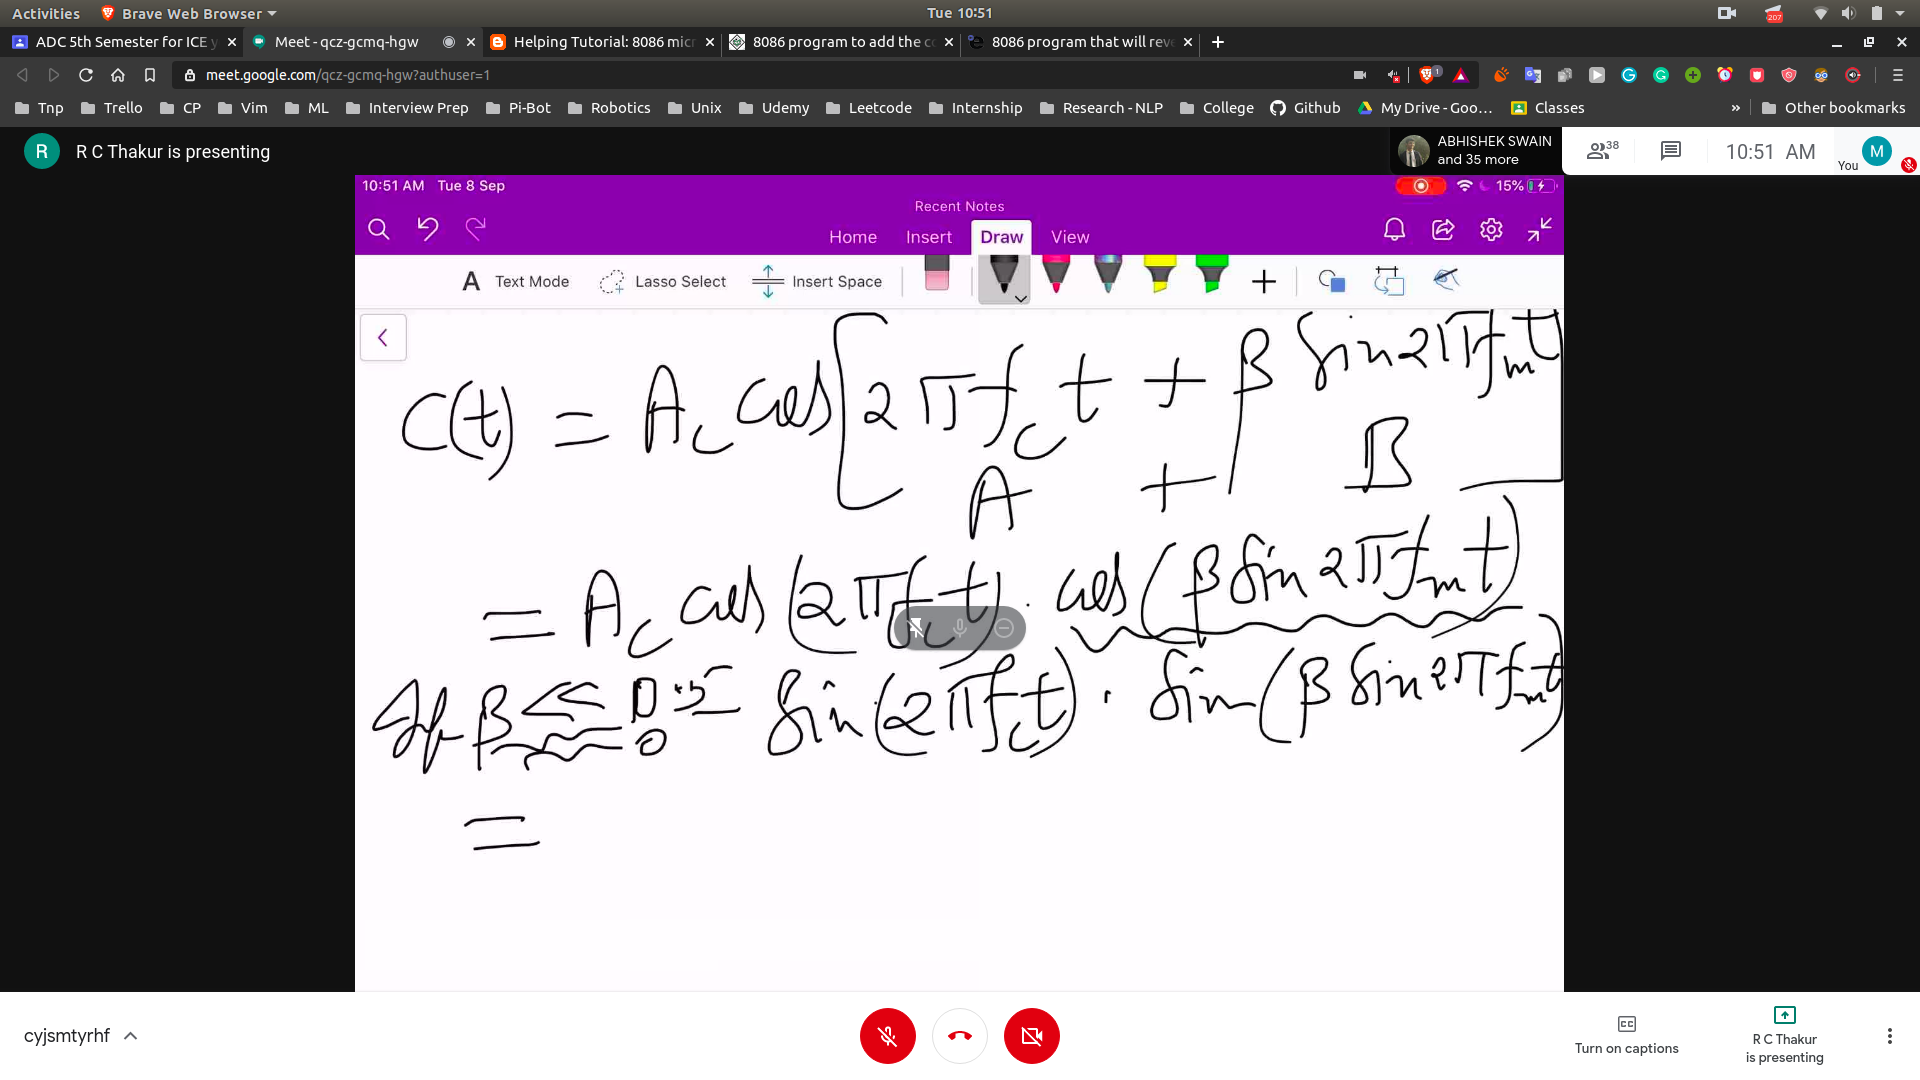 Activities Brave Web Browser Tue 10:51 207
ADC 5th Semester for ICE y Meet - qcz-gcmq-hgw Helping Tutorial: 8086 micr 8086 program to add the co 8086 program that will reve
meet.google.com/qcz-gcmq-hgw?authuser=1
Tnp Trello CP Vim ML Interview Prep Pi-Bot Robotics Unix Udemy Leetcode Internship Research - NLP College Github My Drive - Goo... Classes » Other bookmarks
R R C Thakur is presenting
ABHISHEK SWAIN
and 35 more
38 10:51 AM You M
10:51 AM Tue 8 Sep 15%
Recent Notes
Home Insert Draw View
A Text Mode Lasso Select Insert Space
C(t) = A_c cos[2πf_c t + β sin2πf_m t]
A + B
= A_c cos(2πf_c t) . cos(β sin2πf_m t)
If β << 0.5 - sin(2πf_c t) . sin(β sin2πf_m t)
0
=
cyjsmtyrhf
Turn on captions
R C Thakur
is presenting